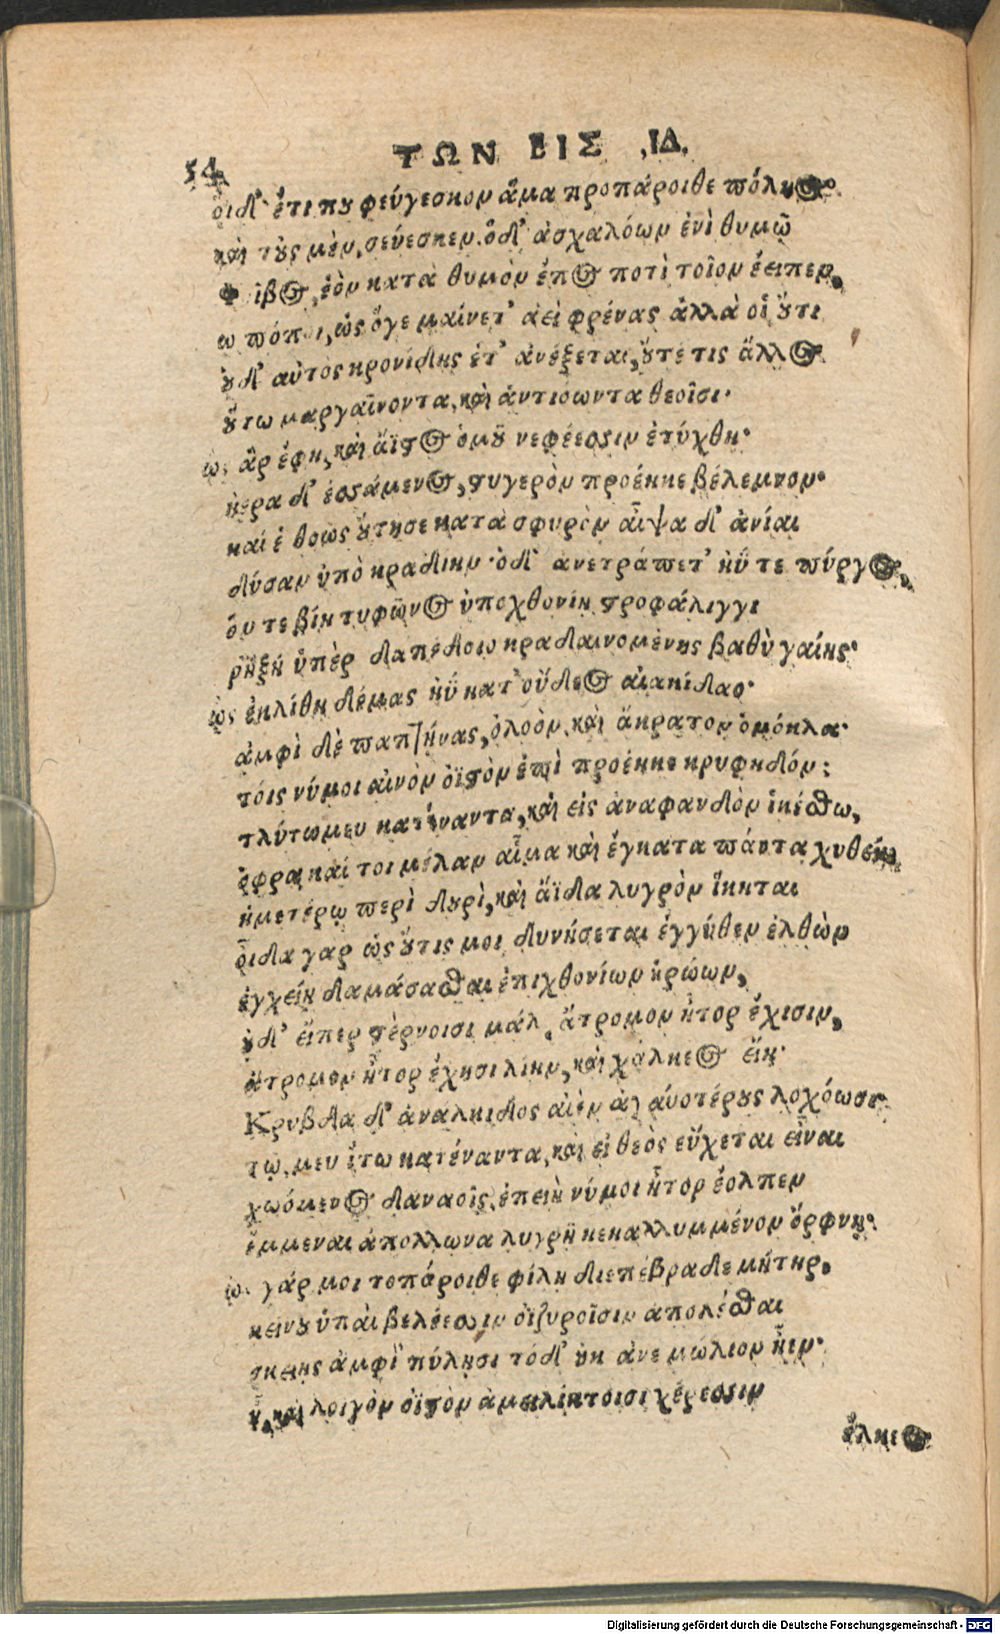 54
ΤΩΝ ΕΙΣ ,ΙΔ,
οἱ δ' ἔτι που φεύγεσκον ἅμα προπάροιθε πόληος.
καὶ τοὺς μὲν, σεύεσκεν. ὁ δ' ἀσχαλόων ἐνὶ θυμῷ
Φοῖβος, ἑὸν κατὰ θυμὸν ἔπος ποτὶ τοῖον ἔειπεν,
ω πόποι, ὡς ὅγε μαίνετ' ἀεὶ φρένας ἀλλὰ οἱ οὔτι
οὐδ' αὐτὸς κρονίδης ἐτ' ἀνέξεται, οὔτέ τις ἄλλος
οὕτω μαργαῖνοντα, καὶ ἀντιόωντα θεοῖσι.
ὡς ἂρ ἔφη, καὶ ἄϊστος ὁμοῦ νεφέεσσιν ἐτύχθη.
ἠέρα δ' ἑσσάμενος, στυγερὸν προέηκε βέλεμνον.
καί ἑ θοῶς οὔτησε κατὰ σφυρὸν αἶψα δ' ἀνίαι
δύσαν ὑπὸ κραδίην. ὁ δ' ἀνετράπετ' ἠΰτε πύργος,
ὅν τε βίη τυφῶνος ὑποχθονίη στροφάλιγγι
ῥήξῃ ὑπὲρ δαπέδοιο κραδαινομένης βαθὺ γαίης.
ὡς ἐκλίθη δέμας ἠῢ κατ' οὔδεος αἰακίδαο.
ἀμφὶ δὲ παπτήνας, ὀλοὸν, καὶ ἄκρατον ὁμόκλα.
τόις νύμοι αἰνὸν ὀϊστὸν ἐπὶ προέηκε κρυφηδόν;
τλύτωμευ κατέναντα, καὶ εἰς ἀναφανδὸν ἱκέσθω,
ὄφρα καί τοι μέλαν αἷμα καὶ ἔγκατα πάντα χυθείη
ἡμετέρῳ περὶ δουρὶ, καὶ ἄϊδα λυγρὸν ἵκηται
οἶδα γαρ ὡς οὔτις μοι δυνήσεται ἐγγύθεν ἐλθὼν
ἐγχείη δαμάσασθαι ἐπιχθονίων ἡρώων,
οὐδ' εἴπερ στέρνοισι μάλ, ἄτρομον ἦτορ ἔχισιν,
ἄτρομον ἦτορ ἔχησι λίην, καὶ χάλκεος εἴη.
Κρυβδα δ' ἀνάλκιδος αἰὲν ἀγαύοτέρους λοχόωσι.
τῷ, μευ ἴτω κατέναντα, καὶ εἰ θεὸς εὔχεται εἶναι
χωόμενος δαναοῖς. ἐπειὴ νύμοι ἦτορ ἔολπεν
ἔμμεναι ἀπολλωνα λυγρῇ κεκαλλυμμένον ὄρφνῃ.
ὡς γάρ μοι τοπάροιθε φίλη διεπέφραδε μήτηρ,
κείνου ὑπαὶ βελέεσσιν ὀϊζυροῖσιν ἀπολέσθαι
σκειῆς ἀμφὶ πύλησι τόδ' οὐκ ἀνεμώλιον ἦεν.
ἦ, καὶ λοιγὸν ὀϊστὸν ἀμειλίκτοισι χέρεσσιν
ἕλκεος
Digitalisierung gefördert durch die Deutsche Forschungsgemeinschaft - DFG